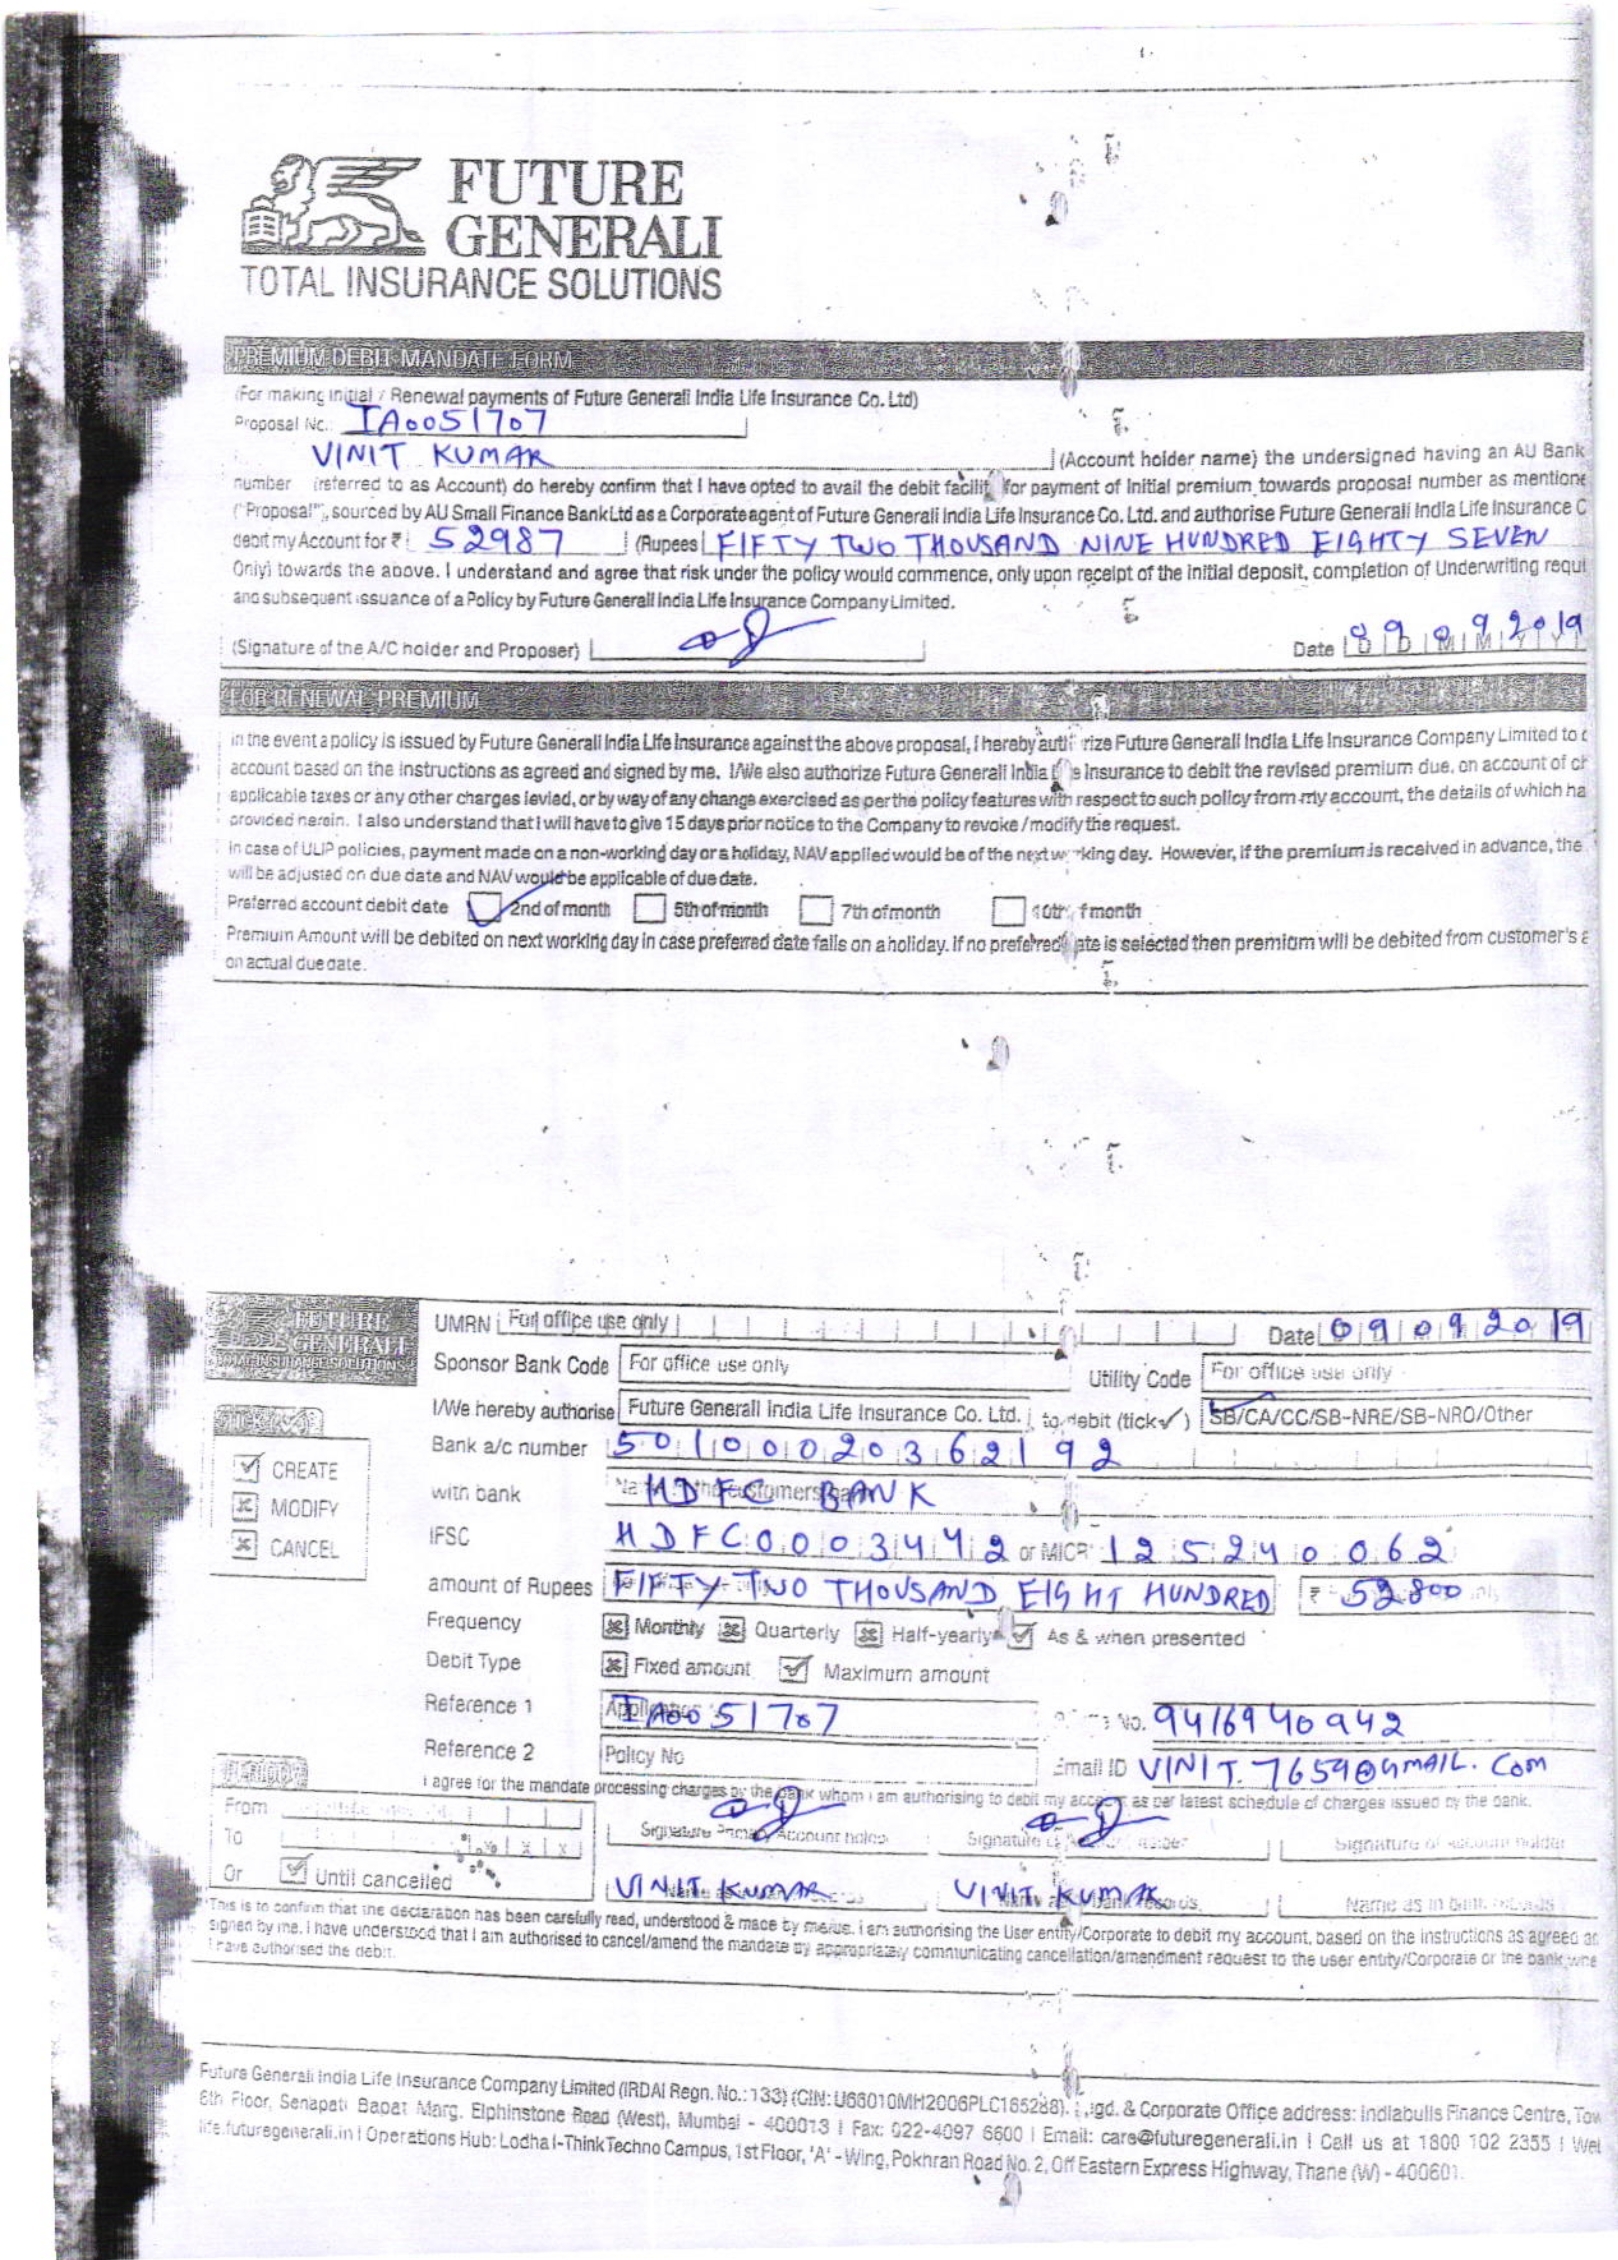 FUTURE
GENERALI
TOTAL INSURANCE SOLUTIONS
PREMIUM DEBIT MANDATE FORM
(For making Initial / Renewal payments of Future Generali India Life Insurance Co. Ltd)
Proposal No.: IA0051707
VINIT KUMAR (Account holder name) the undersigned having an AU Bank
number (referred to as Account) do hereby confirm that I have opted to avail the debit facilit for payment of Initial premium towards proposal number as mentione
("Proposal"), sourced by AU Small Finance Bank Ltd as a Corporate agent of Future Generali India Life Insurance Co. Ltd. and authorise Future Generali India Life Insurance C
debit my Account for ₹ 52987 (Rupees FIFTY TWO THOUSAND NINE HUNDRED EIGHTY SEVEN
Only) towards the above. I understand and agree that risk under the policy would commence, only upon receipt of the initial deposit, completion of Underwriting requi
and subsequent issuance of a Policy by Future Generali India Life Insurance Company Limited.
(Signature of the A/C holder and Proposer) Date 09092019
FOR RENEWAL PREMIUM
In the event a policy is issued by Future Generali India Life Insurance against the above proposal, I hereby auth rize Future Generali India Life Insurance Company Limited to d
account based on the instructions as agreed and signed by me. I/We also authorize Future Generali India e Insurance to debit the revised premium due, on account of ch
applicable taxes or any other charges levied, or by way of any change exercised as per the policy features with respect to such policy from my account, the details of which ha
provided herein. I also understand that I will have to give 15 days prior notice to the Company to revoke / modify the request.
In case of ULIP policies, payment made on a non-working day or a holiday, NAV applied would be of the next w rking day. However, if the premium is received in advance, the
will be adjusted on due date and NAV would be applicable of due date.
Preferred account debit date 2nd of month 5th of month 7th of month 10th f month
Premium Amount will be debited on next working day in case preferred date falls on a holiday. If no preferred ate is selected then premium will be debited from customer's a
on actual due date.
FUTURE
GENERALI
TOTAL INSURANCE SOLUTIONS
UMRN For office use only Date 09092019
Sponsor Bank Code For office use only Utility Code For office use only
I/We hereby authorise Future Generali India Life Insurance Co. Ltd. to debit (tick✓) SB/CA/CC/SB-NRE/SB-NRO/Other
CREATE
MODIFY
CANCEL
Bank a/c number 50100020362192
with bank HDFC BANK
IFSC HDFC0003442 or MICR 125240062
amount of Rupees FIFTY TWO THOUSAND EIGHT HUNDRED ₹ 52800
Frequency Monthly Quarterly Half-yearly As & when presented
Debit Type Fixed amount Maximum amount
Reference 1 IA0051707 No. 9416940942
Reference 2 Policy No Email ID VINIT.7659@GMAIL.COM
I agree for the mandate processing charges by the bank whom I am authorising to debit my account as per latest schedule of charges issued by the bank.
From
To
Signature Primary Account holder Signature of Account holder Signature of account holder
Or Until cancelled
VINIT KUMAR VINIT KUMAR Name as in bank records
This is to confirm that the declaration has been carefully read, understood & made by me/us. I am authorising the User entity/Corporate to debit my account, based on the instructions as agreed an
signed by me. I have understood that I am authorised to cancel/amend the mandate by appropriately communicating cancellation/amendment request to the user entity/Corporate or the bank whe
I have authorised the debit.
Future Generali India Life Insurance Company Limited (IRDAI Regn. No.: 133) (CIN: U66010MH2006PLC165288). gd. & Corporate Office address: Indiabulls Finance Centre, Tow
6th Floor, Senapati Bapat Marg, Elphinstone Road (West), Mumbai - 400013 | Fax: 022-4097 6600 | Email: care@futuregenerali.in | Call us at 1800 102 2355 | Web
life.futuregenerali.in | Operations Hub: Lodha I-Think Techno Campus, 1st Floor, 'A' - Wing, Pokhran Road No. 2, Off Eastern Express Highway, Thane (W) - 400601.